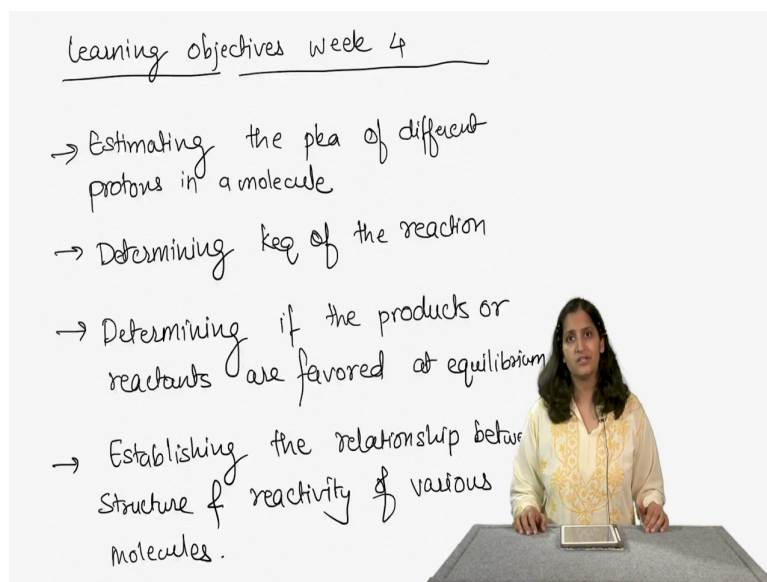 learning objectives week 4
→ Estimating the pka of different
protons in a molecule
→ Determining keq of the reaction
→ Determining if the products or
reactants are favored at equilibrium
→ Establishing the relationship betwe
structure & reactivity of various
molecules.